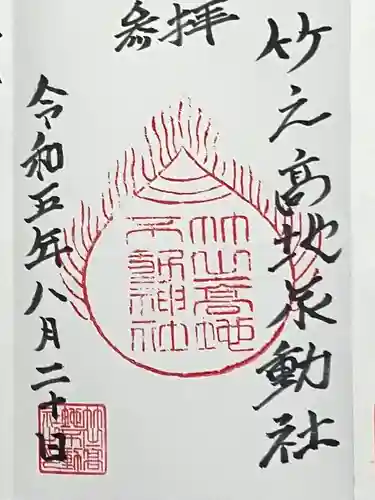 參拝
竹之髙地不動社
竹之高地
不動神社
令和五年八月二十日
竹之高
地不動